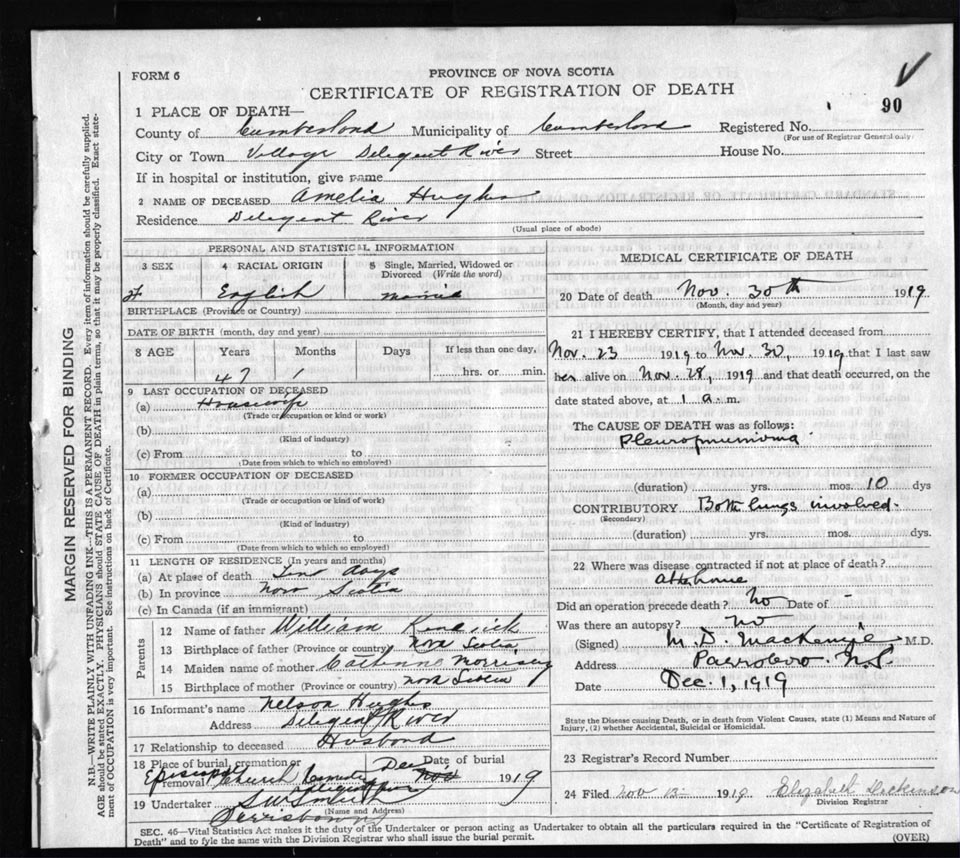 FORM 6
PROVINCE OF NOVA SCOTIA
CERTIFICATE OF REGISTRATION OF DEATH
90
1 PLACE OF DEATH—
County of Cumberland Municipality of Cumberland Registered No.
(For use of Registrar General only)
City or Town Village Deligent River Street House No.
If in hospital or institution, give name
2 NAME OF DECEASED Amelia Hughes
Residence Deligent River
(Usual place of abode)
PERSONAL AND STATISTICAL INFORMATION
3 SEX 4 RACIAL ORIGIN 5 Single, Married, Widowed or Divorced (Write the word)
F English Married
BIRTHPLACE (Province or Country)
DATE OF BIRTH (month, day and year)
8 AGE Years Months Days If less than one day,
47 1 hrs. or min.
9 LAST OCCUPATION OF DECEASED
(a) Housewife
(Trade or occupation or kind or work)
(b)
(Kind of industry)
(c) From to
(Date from which to which so employed)
10 FORMER OCCUPATION OF DECEASED
(a)
(Trade or occupation or kind of work)
(b)
(Kind of industry)
(c) From to
(Date from which to which so employed)
11 LENGTH OF RESIDENCE (In years and months)
(a) At place of death Ten days
(b) In province Nova Scotia
(c) In Canada (if an immigrant)
Parents
12 Name of father William
13 Birthplace of father (Province or country) Nova Scotia
14 Maiden name of mother Catherine Morrisey
15 Birthplace of mother (Province or country) Nova Scotia
16 Informant's name Nelson Hughes
Address Deligent River
17 Relationship to deceased Husbond
18 Place of burial, cremation or removal Date of burial
Episcopal Church Cemetery Deligent River Dec Nov 1919
19 Undertaker S W Smith
(Name and Address)
SEC. 46—Vital Statistics Act makes it the duty of the Undertaker or person acting as Undertaker to obtain all the particulars required in the "Certificate of Registration of
Death" and to fyle the same with the Division Registrar who shall issue the burial permit. (OVER)
MEDICAL CERTIFICATE OF DEATH
20 Date of death Nov. 30th 1919
(Month, day and year)
21 I HEREBY CERTIFY, that I attended deceased from
Nov. 23 1919 to Nov. 30, 1919 that I last saw
her alive on Nov. 28, 1919 and that death occurred, on the
date stated above, at 1 a. m.
The CAUSE OF DEATH was as follows:
Pleuropneumonia
(duration) yrs. mos. 10 dys
CONTRIBUTORY Both lungs involved.
(Secondary)
(duration) yrs. mos. dys.
22 Where was disease contracted if not at place of death?
At home
Did an operation precede death? No Date of -
Was there an autopsy? No
(Signed) M. D. MacKenzie M.D.
Address Parrsboro N.S.
Date Dec. 1, 1919
State the Disease causing Death, or in death from Violent Causes, state (1) Means and Nature of
Injury, (2) whether Accidental, Suicidal or Homicidal.
23 Registrar's Record Number
24 Filed Nov 1919 Elizabeth
Division Registrar
MARGIN RESERVED FOR BINDING
N.B.—WRITE PLAINLY WITH UNFADING INK—THIS IS A PERMANENT RECORD. Every item of information should be carefully supplied.
AGE should be stated EXACTLY. PHYSICIANS should STATE CAUSE OF DEATH in plain terms, so that it may be properly classified. Exact state-
ment of OCCUPATION is very important. See instructions on back of Certificate.